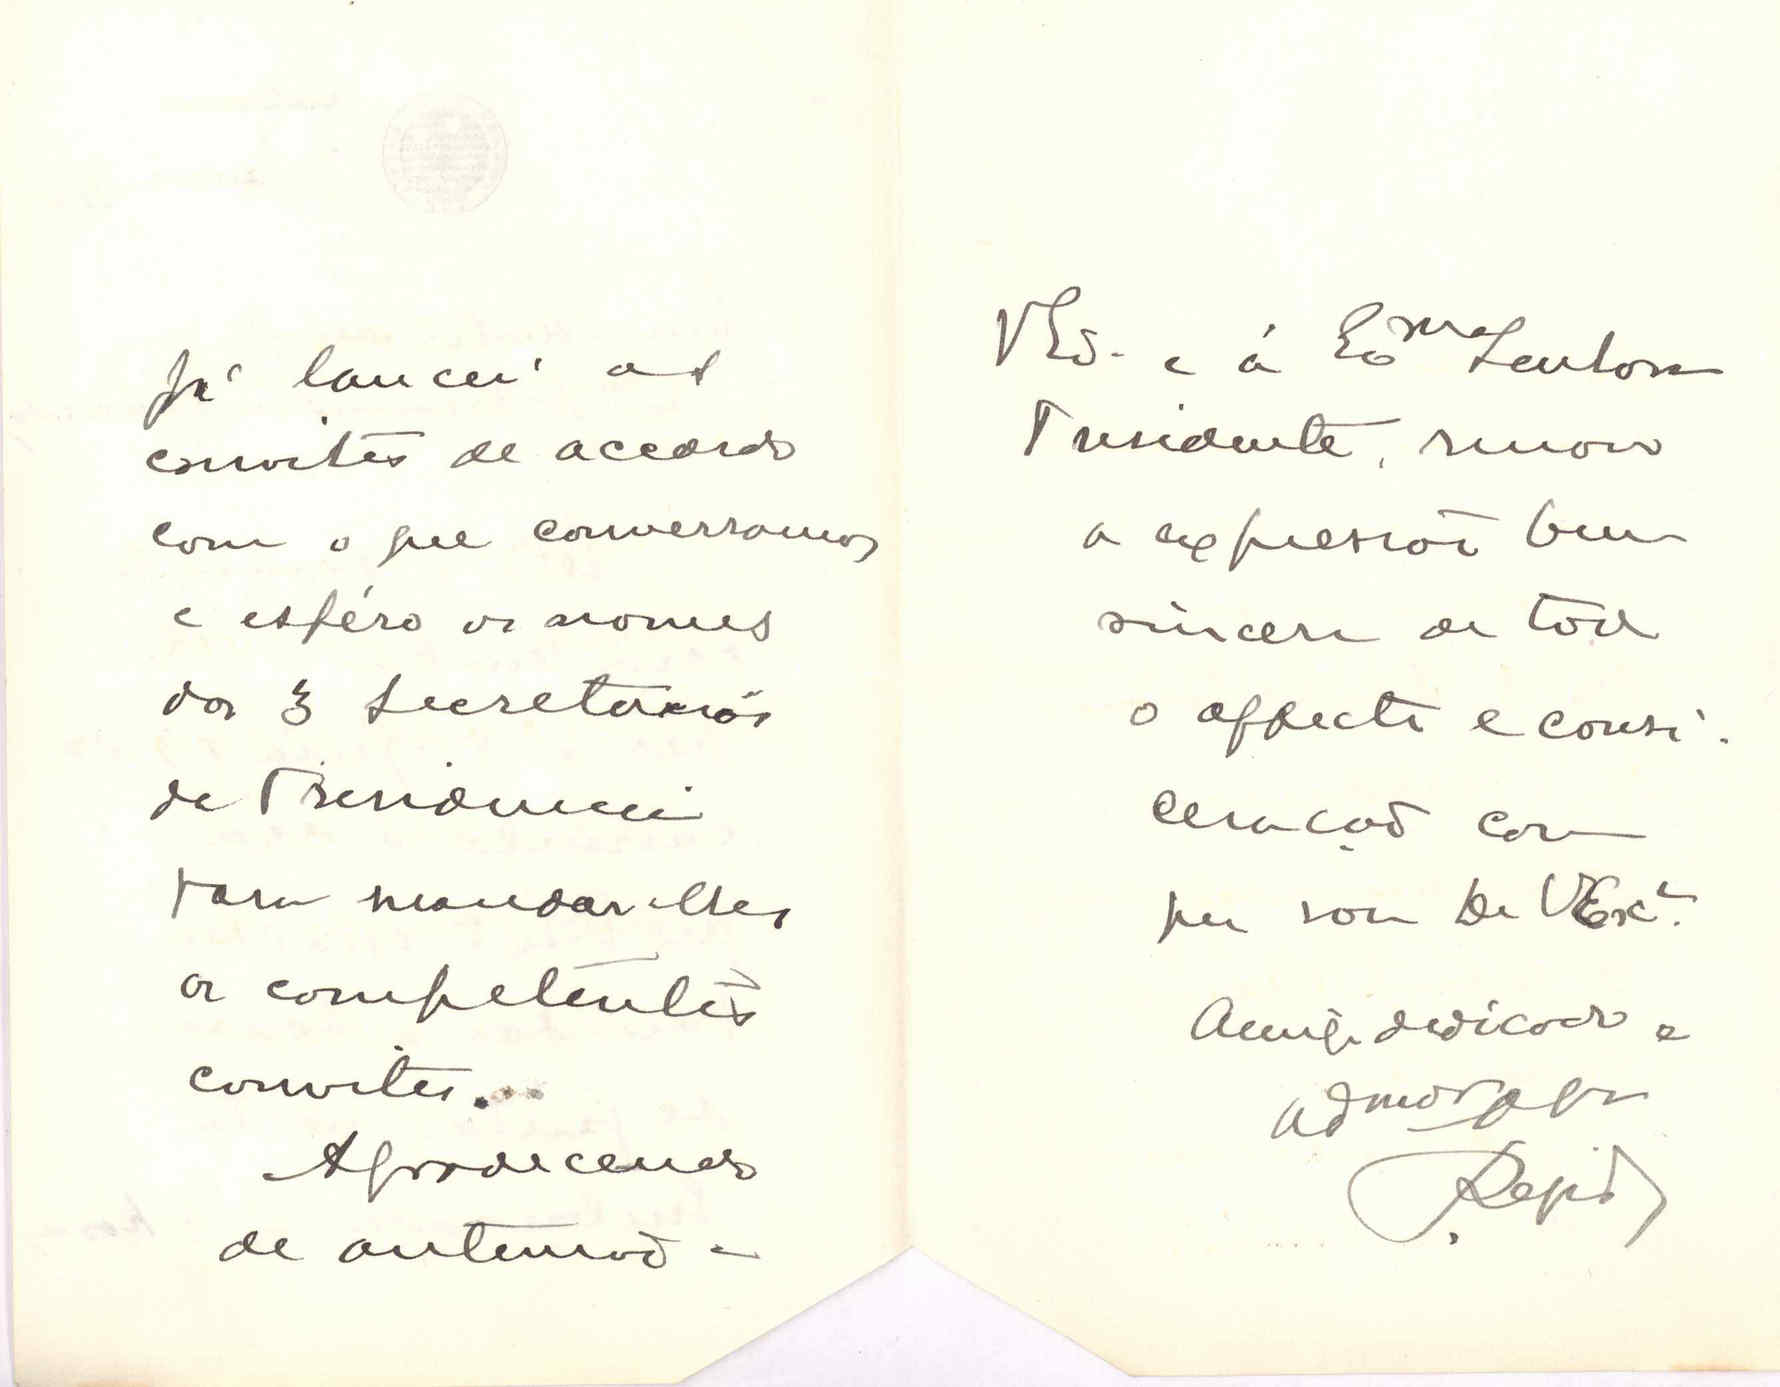 Já lancei as
convites de accordo
com o que conversamos
e espéro os nomes
dos 3 Secretarios
da Presidencia
para mandar-lhes
os competentes
convites.
Agradecendo
de antemão a
VEx. e á Exma Senhora
Presidente, renovo
a expressão bem
sincera de todo
o affecto e consi-
deração com
que sou De VExa.
Amigo dedicado e
admor